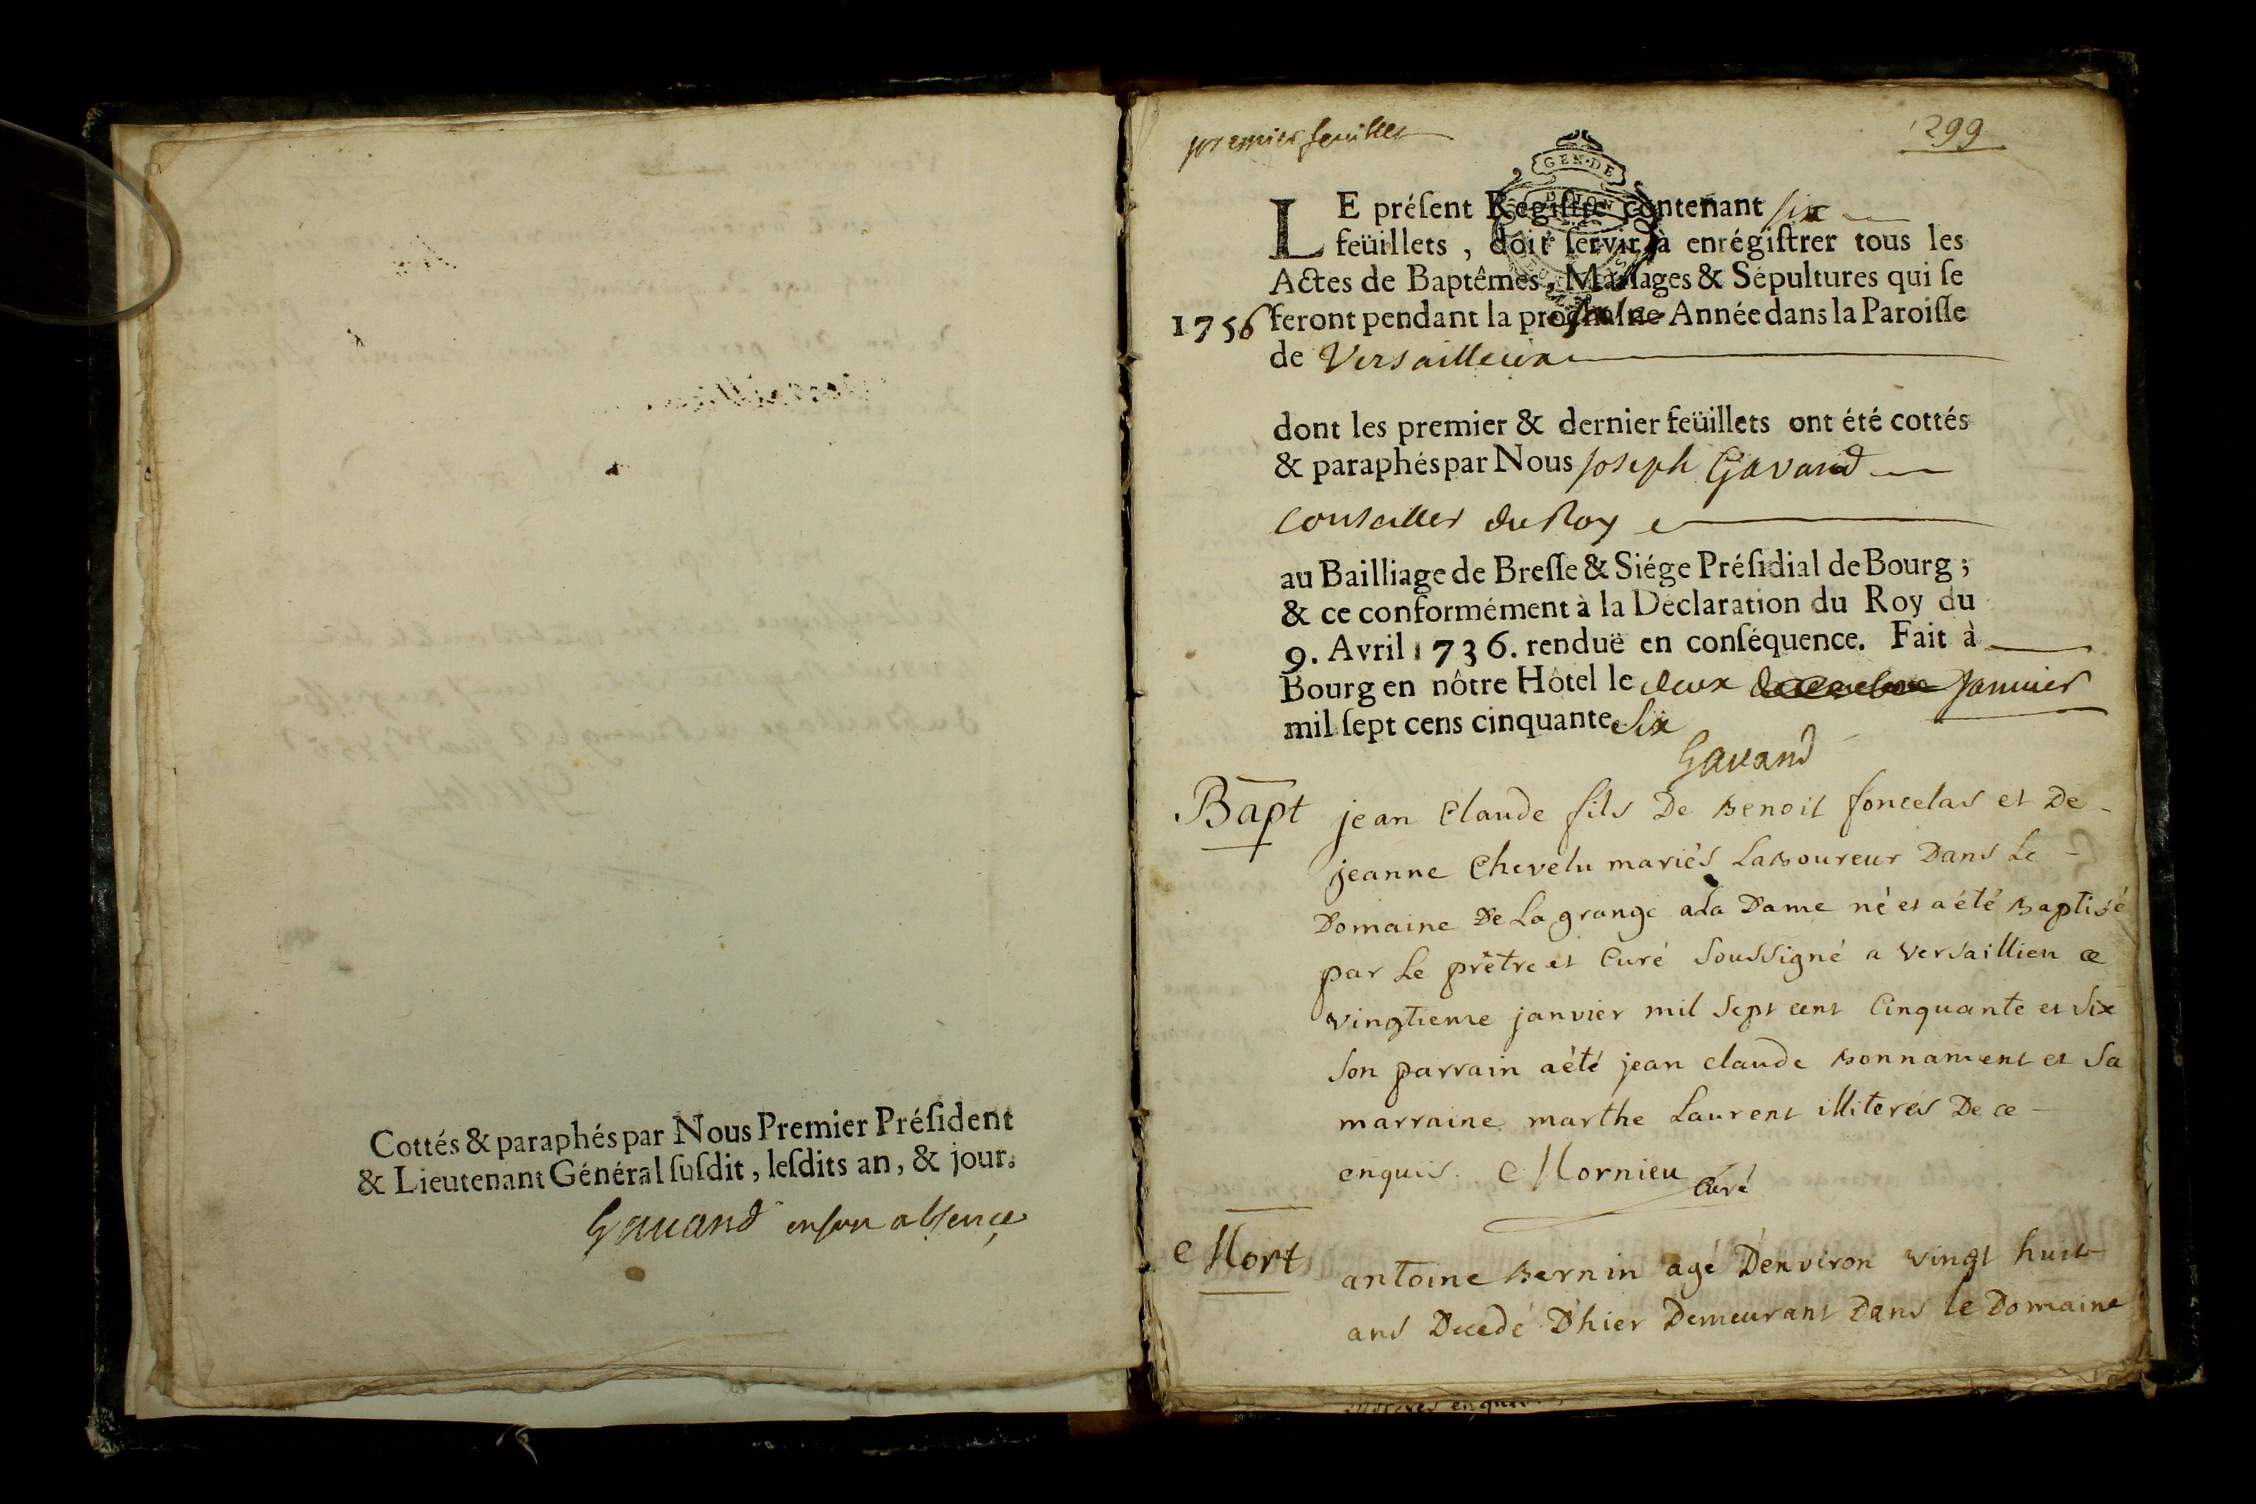 Cottés & paraphés par Nous Premier Président
& Lieutenant Général ſuſdit, leſdits an, & jour.
Gavand en son absence
premier feuillet
299
GEN·DE
DIJON
LE préſent Regiſtre contenant six
feüillets, doit ſervir à enrégiſtrer tous les
Actes de Baptêmes, Mariages & Sépultures qui ſe
1756 feront pendant la prochaine Année dans la Paroiſſe
de Versailleux
dont les premier & dernier feüillets ont été cottés
& paraphés par Nous Joseph Gavand
Conseiller du Roy
au Bailliage de Breſſe & Siége Préſidial de Bourg;
& ce conformément à la Déclaration du Roy du
9. Avril 1736. renduë en conſéquence. Fait à
Bourg en nôtre Hôtel le deux decembre Janvier
mil ſept cens cinquante Six
Gavand
Bapt jean Claude fils De Benoit foncelas et De
jeanne Chevelu mariés Laboureur Dans Le
Domaine De La grange a la Dame né et a été Baptisé
par Le prêtre et Curé Soussigné a Versaillieu ce
vingtieme janvier mil Sept cent Cinquante et Six
Son parrain a été jean claude Bonnament et Sa
marraine marthe Laurent illiterés De ce
enquis. Mornieu Curé
Mort antoine Bernin agé D'environ vingt huit
ans Decedé D'hier Demeurant Dans le Domaine
enquis